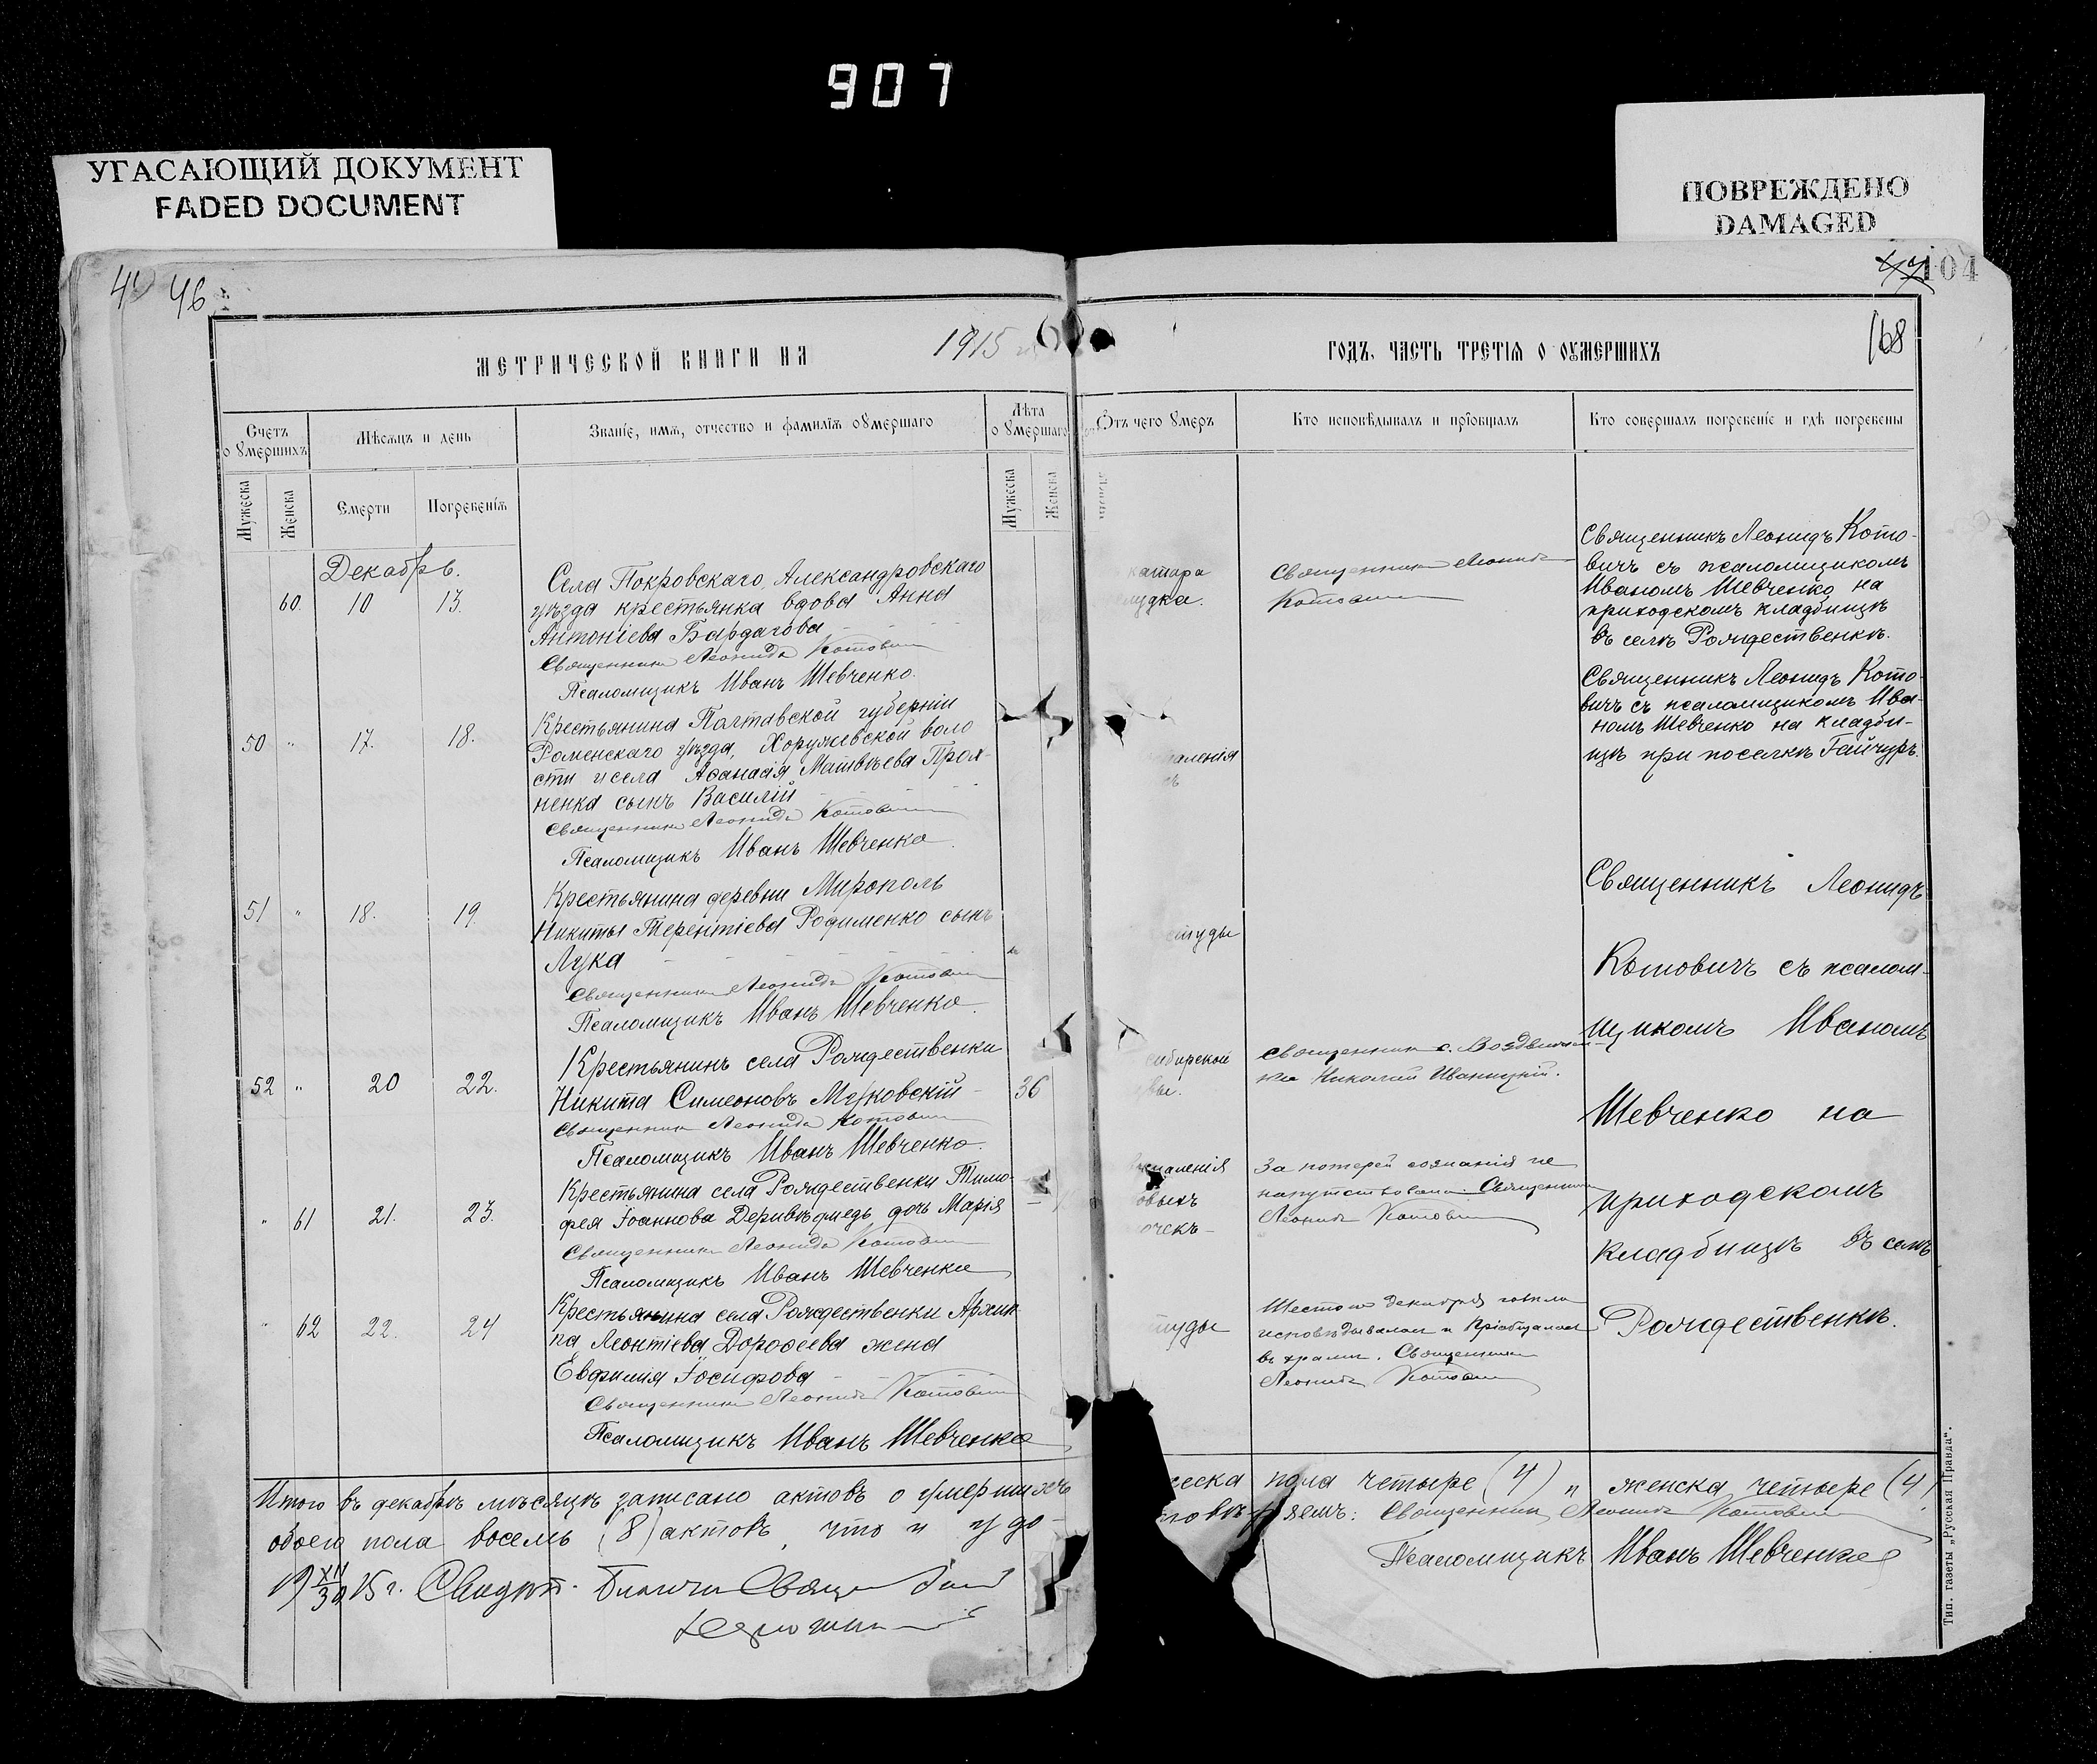 907
УГАСАЮЩИЙ ДОКУМЕНТ
FADED DOCUMENT
ПОВРЕЖДЕНО
DAMAGED
46
104
168
МЕТРИЧЕСКОЙ КНИГИ НА 1915
ГОДЪ, ЧАСТЬ ТРЕТІѦ О ОУМЕРШИХЪ
Счетъ о ꙋмершихъ
Мѣсѧцъ и день
Званіе, имѧ, отчество и фамиліѧ оꙋмершаго
Лѣта о ꙋмершаго
Отъ чего ꙋмеръ
Кто исповѣдывалъ и пріобщалъ
Кто совершалъ погребеніе и гдѣ погребены
Мужеска
Женска
Смерти
Погребеніѧ
Мужеска
Женска
Декабрь.
60 10 13.
Села Покровскаго, Александровскаго
уѣзда крестьянка вдова Анна
Антоніева Бардагова
Священникъ Леонидъ Котовичъ
Псаломщикъ Иванъ Шевченко.
катара
лудка.
Священникъ Леонидъ
Котовичъ
Священникъ Леонидъ Кото-
вичъ съ псаломщикомъ
Иваномъ Шевченко на
приходскомъ кладбищѣ
въ селѣ Рождественкѣ.
50 " 17. 18.
Крестьянина Полтавской губерніи
Роменскаго уѣзда, Хоружевской воло
сти и села Аѳанасія Матвѣева Прох-
ненка сынъ Василій
Священникъ Леонидъ Котовичъ
Псаломщикъ Иванъ Шевченко.
паленія
Священникъ Леонидъ Кото-
вичъ съ псаломщикомъ Ива-
номъ Шевченко на кладби-
щѣ при поселкѣ Гайчуръ.
51 " 18. 19
Крестьянина деревни Мирополь
Никиты Терентіева Родименко сынъ
Лука
Священникъ Леонидъ Котовичъ
Псаломщикъ Иванъ Шевченко.
туды
Священникъ Леонидъ
Котовичъ съ псалом-
щикомъ Иваномъ
Шевченко на
приходскомъ
кладбищѣ въ селѣ
Рождественкѣ.
52 " 20 22.
Крестьянинъ села Рождественки
Никита Симеоновъ Мауковскій 36
Священникъ Леонидъ Котовичъ
Псаломщикъ Иванъ Шевченко.
сибирской
вы.
Священникъ с. Воздвижен-
ки Николай Иваницкій.
" 61 21. 23.
Крестьянина села Рождественки Тимо-
фея Іоаннова Деривѣдмедь дочь Марія
Священникъ Леонидъ Котовичъ
Псаломщикъ Иванъ Шевченко
паленія
овыхъ
очекъ
За потерей сознанія не
напутствована. Священникъ
Леонидъ Котовичъ
" 62 22. 24
Крестьянина села Рождественки Архип-
па Леонтіева Дороѳеева жена
Евфимія Іосифова
Священникъ Леонидъ Котовичъ
Псаломщикъ Иванъ Шевченко
туды
Шестого декабря
исповѣдывалъ и пріобщалъ
въ храмѣ. Священникъ
Леонидъ Котовичъ
Итого въ декабрѣ мѣсяцѣ записано актовъ о умершихъ
обоего пола восемь (8) актовъ, что и удо-
еска пола четыре (4) " женска четыре (4)
товѣряемъ: Священникъ Леонидъ Котовичъ
Псаломщикъ Иванъ Шевченко
19 XII/30 15 г.
Тип. газеты „Русская Правда".